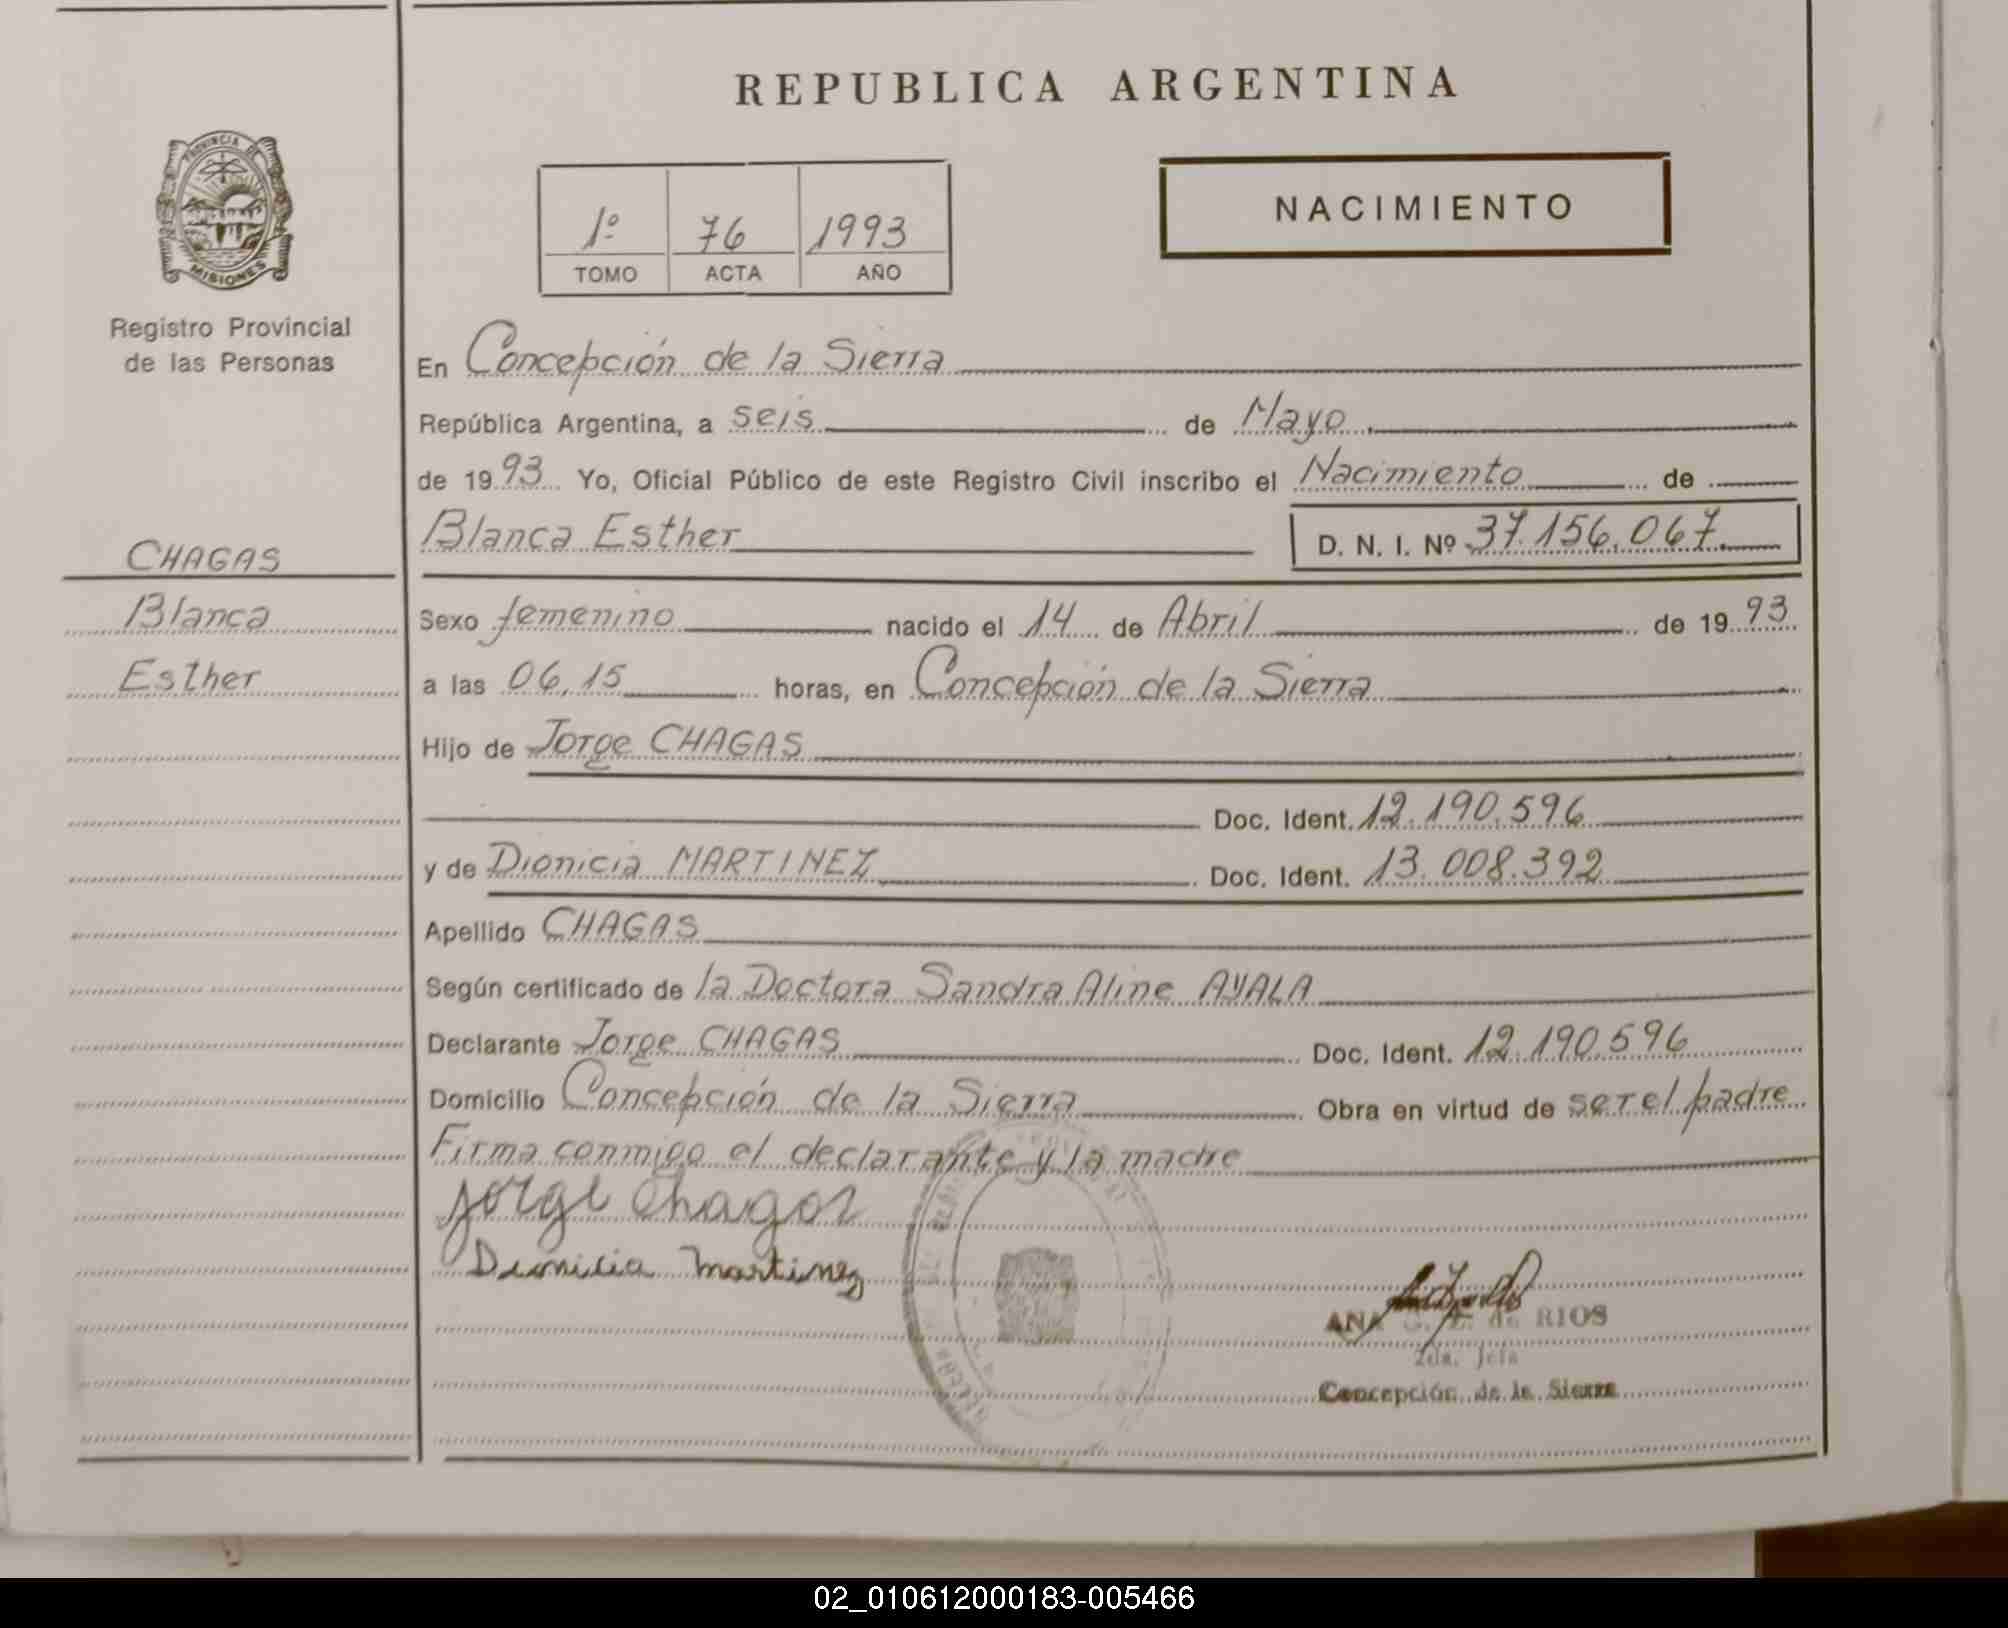 REPUBLICA ARGENTINA
PROVINCIA DE MISIONES
Registro Provincial
de las Personas
NACIMIENTO
1º 76 1993
TOMO ACTA AÑO
En Concepción de la Sierra
República Argentina, a seis de Mayo
de 1993 Yo, Oficial Público de este Registro Civil inscribo el Nacimiento de
Blanca Esther D. N. I. Nº 37.156.067
CHAGAS
Blanca
Esther
Sexo femenino nacido el 14 de Abril de 1993
a las 06,15 horas, en Concepción de la Sierra
Hijo de Jorge CHAGAS
Doc. Ident. 12.190.596
y de Dionicia MARTINEZ Doc. Ident. 13.008.392
Apellido CHAGAS
Según certificado de la Doctora Sandra Aline AYALA
Declarante Jorge CHAGAS Doc. Ident. 12.190.596
Domicilio Concepción de la Sierra Obra en virtud de ser el padre
Firma conmigo el declarante y la madre
Jorge Chagas
Dionicia Martinez
ANA de RIOS
2da. Jefa
Concepción de la Sierra
02_010612000183-005466